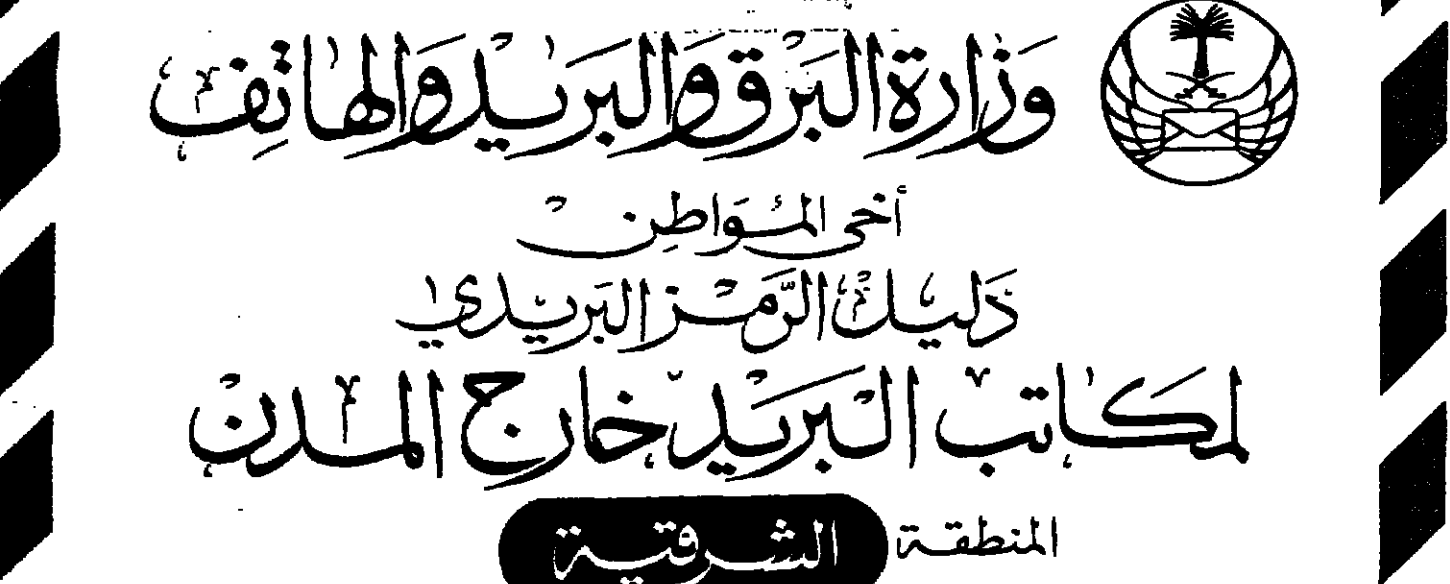 وزارة البرق والبريد والهاتف
أخي المواطن
دليلك الرمز البريدي
لمكاتب البريد خارج المدن
المنطقة الشرقية